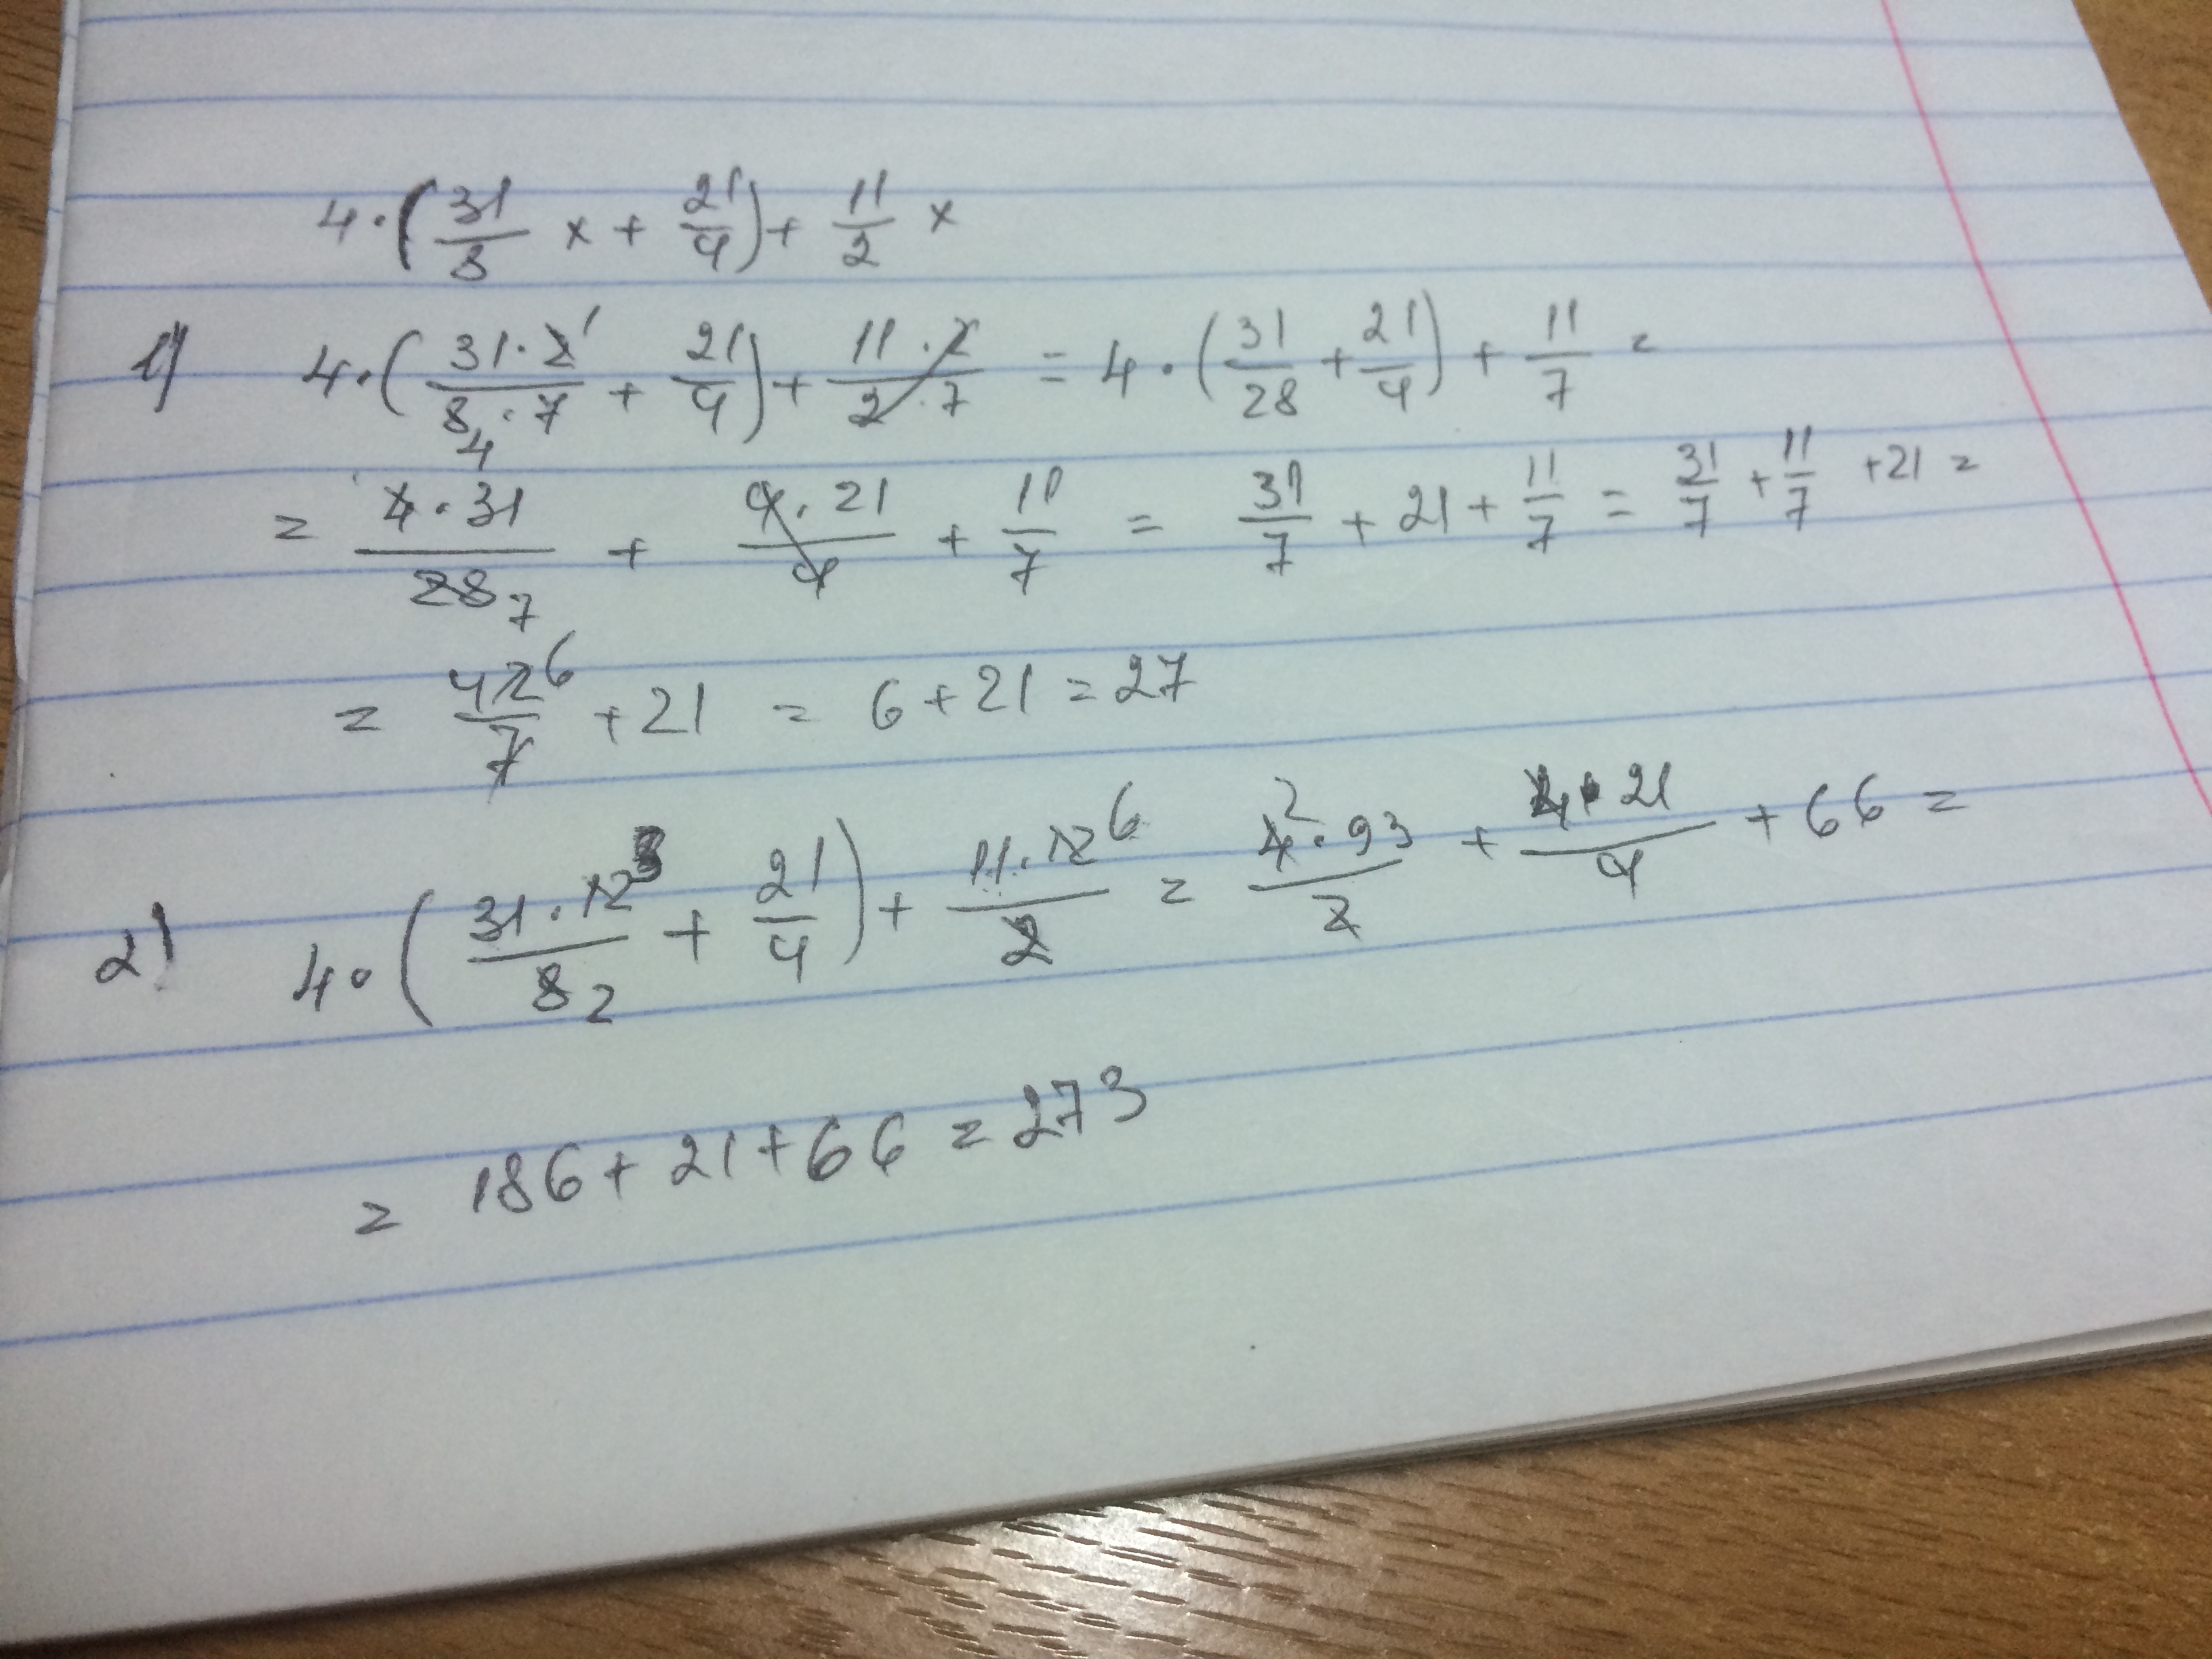 4·(31/8 x + 21/4) + 11/2 x
1) 4·(31·2 1/8 4·7 + 21/4) + 11·2/2·7 = 4·(31/28 + 21/4) + 11/7 =
= 4·31/28 7 + 4·21/4 + 11/7 = 31/7 + 21 + 11/7 = 31/7 + 11/7 + 21 =
= 42 6/7 + 21 = 6 + 21 = 27
2) 4·(31·12 3/8 2 + 21/4) + 11·12 6/2 = 4 2·93/2 + 4·21/4 + 66 =
= 186 + 21 + 66 = 273